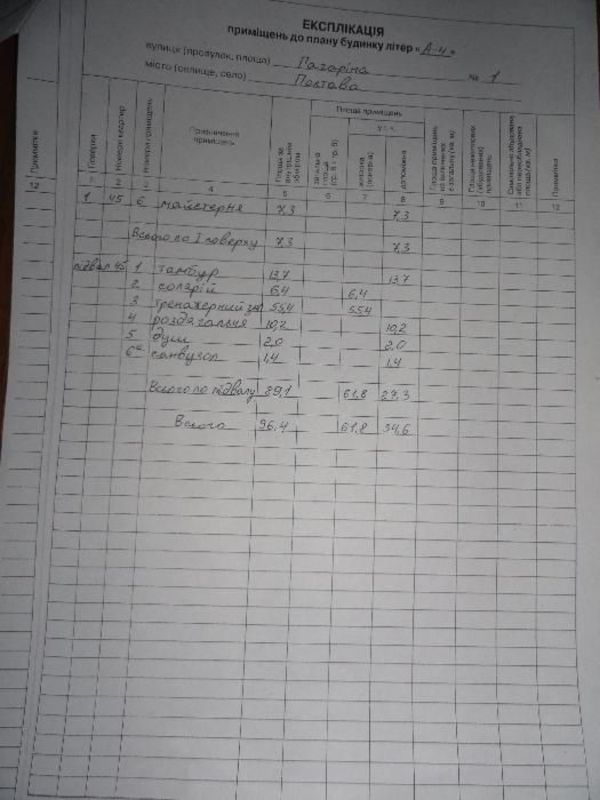 ЕКСПЛІКАЦІЯ
приміщень до плану будинку літер «А-4»
вулиця (провулок, площа) Гагаріна № 1
місто (селище, село) Полтава
Примітки
Поверхи
Номери квартир
Номери приміщень
Призначення приміщень
Площа за внутрішнім обміром
Площа приміщень
загальна площа
у т. ч.
допоміжна
Примітки
12 2 3 4 5 6 7 8 9 10 11 12
1 45 6 майстерня 7,3 7,3
Всього по I поверху 7,3 7,3
підвал 45 1 тамбур 13,7 13,7
2 солярій 6,4 6,4
3 тренажерний зал 55,4 55,4
4 роздягальня 10,2 10,2
5 душ 2,0 2,0
6 санвузол 1,4 1,4
Всього по підвалу 89,1 61,8 27,3
Всього 96,4 61,8 34,6